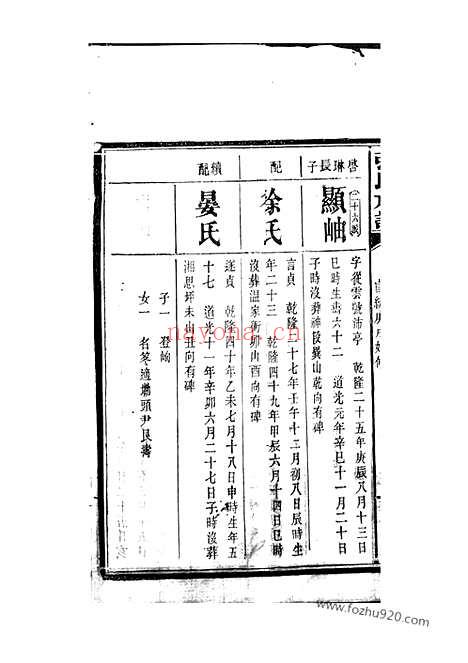 啓琳長子
二十六歲
顯岫
字從雲號沛亭 乾隆二十五年庚辰八月十三日
巳時生壽六十二 道光元年辛巳十一月二十日
子時沒葬神段巽山乾向有碑
配
徐氏
言貞 乾隆二十七年壬午十三月初八日辰時生
年二十三 乾隆四十九年甲辰六月十四日巳時
沒葬温家衝卯山酉向有碑
續配
晏氏
逐貞 乾隆四十年乙未七月十八日申時生年五
十七 道十一年辛卯六月二十七日子時沒葬
湘思坪未山丑向有碑
子一 登
女一 名冬適 頭尹民壽
nayona.cn
www.fozhu920.com